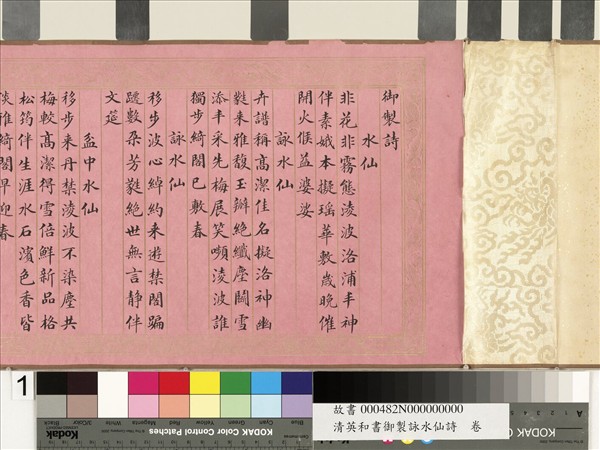 御製詩
水仙
非花非霧態凌波洛浦丰神
伴素娥本擬瑶華數歲晚催
開火候益婆娑
詠水仙
卉譜稱高潔佳名擬洛神幽
蕤来雅馥玉瓣絶纖塵闘雪
添丰采先梅展笑嚬凌波誰
獨步綺閣已敷春
詠水仙
移步波心綽約来遊禁閣蹁
躚數朶芳蕤絶世無言静伴
文筵
盆中水仙
移步来丹禁凌波不染塵共
梅較高潔得雪倍鮮新品格
松筠伴生涯水石濱色香皆
淡雅綺閣早迎春
1
Kodak
KODAK Color Control Patches
Black
3/Color
White
Magenta
Red
Yellow
Green
Cyan
Blue
A 1 2 3 4 5
故書 000482N000000000
清英和書御製詠水仙詩 卷